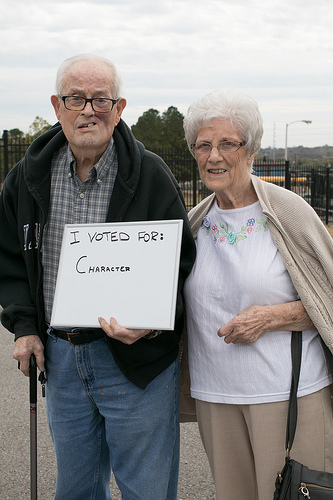 I VOTED FOR:
CHARACTER